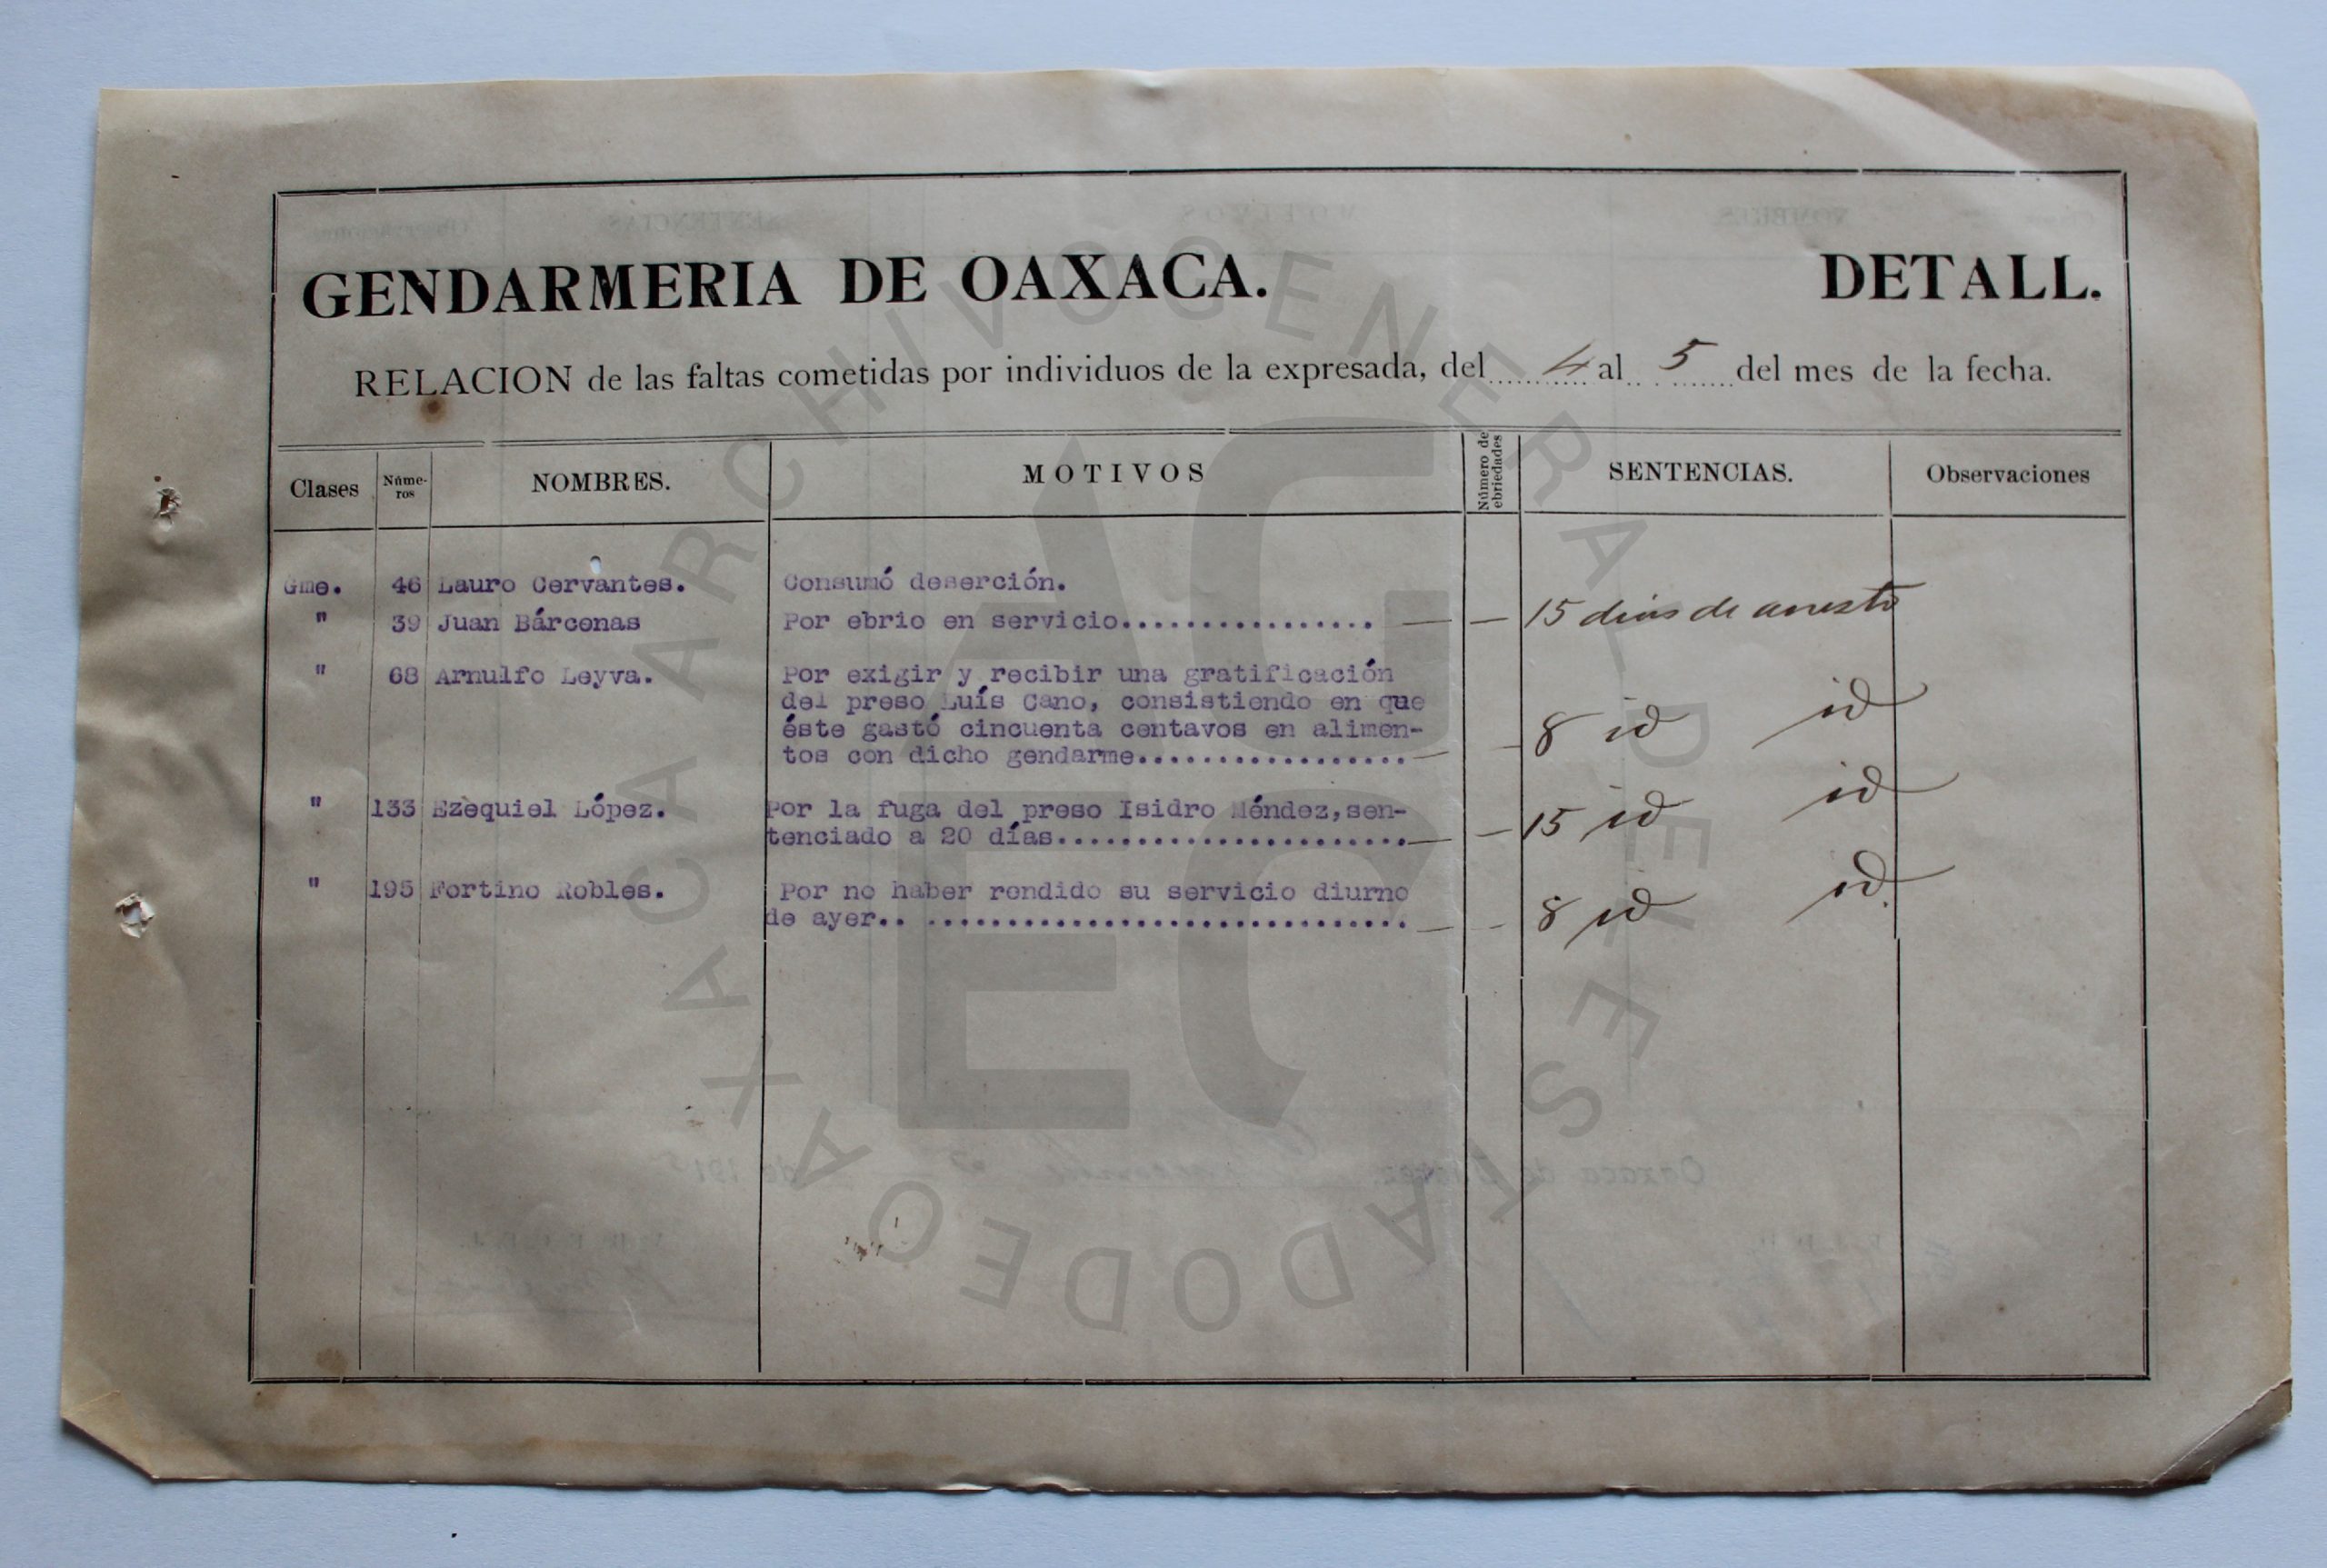 GENDARMERIA DE OAXACA. DETALL.
RELACION de las faltas cometidas por individuos de la expresada, del 4 al 5 del mes de la fecha.
Clases Núme-ros NOMBRES. MOTIVOS Número de ebriedades SENTENCIAS. Observaciones
Gme. 46 Lauro Cervantes. Consumó deserción.
" 39 Juan Bárcenas Por ebrio en servicio................ — — 15 dias de arresto
" 68 Arnulfo Leyva. Por exigir y recibir una gratificación
del preso Luís Cano, consistiendo en que
éste gastó cincuenta centavos en alimen-
tos con dicho gendarme................. — — 8 id id
" 133 Ezequiel López. Por la fuga del preso Isidro Méndez,sen-
tenciado a 20 días...................... — — 15 id id
" 195 Fortino Robles. Por no haber rendido su servicio diurno
de ayer.. .............................. — - 8 id id.
AGEO
ARCHIVO GENERAL DEL ESTADO DE OAXACA